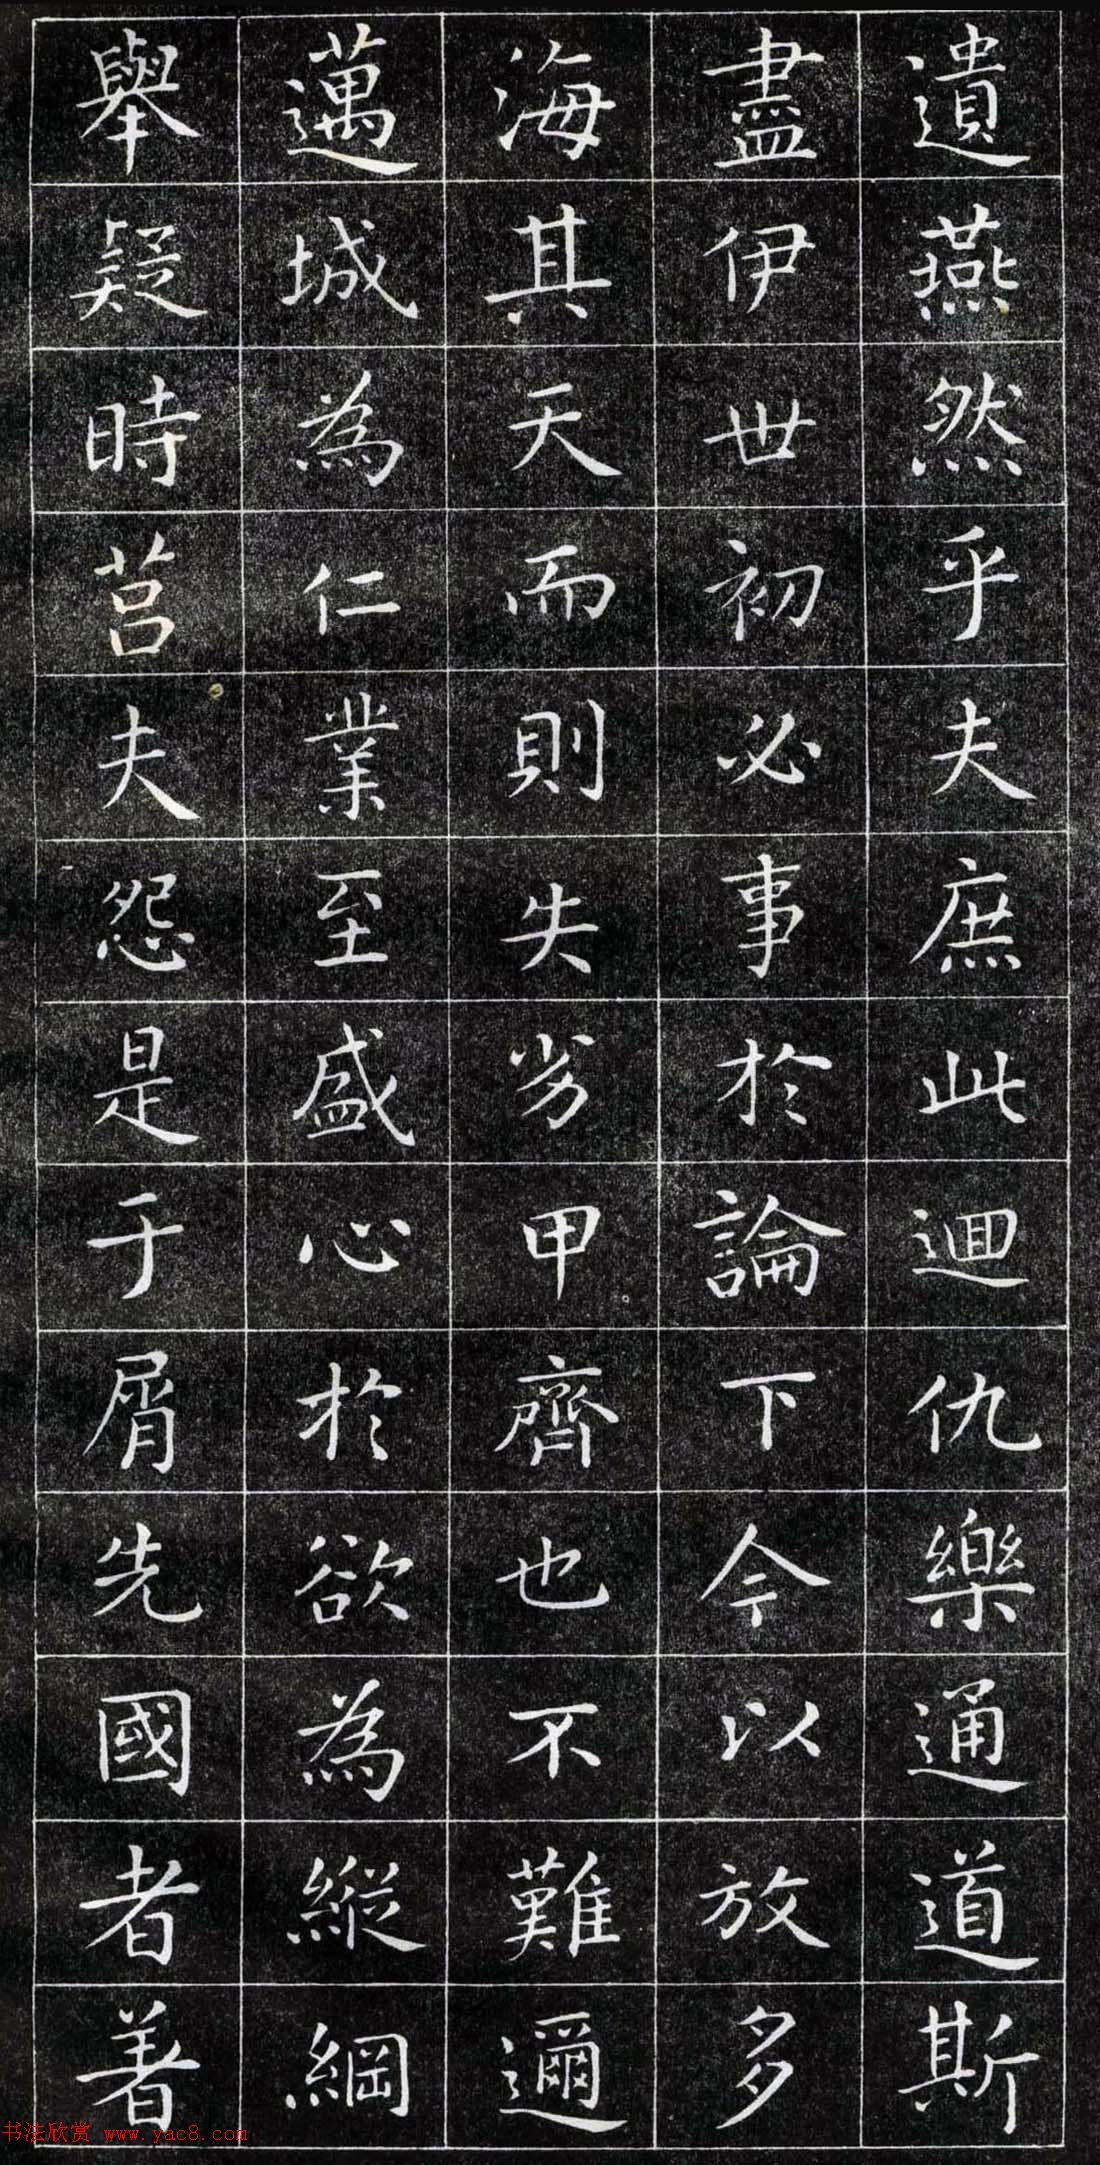 遺燕然乎夫庶此迴仇樂通道斯
盡伊世初必事於論下今以放多
海其天而則失劣甲齊也不難邇
邁城為仁業至盛心於欲為縱綱
舉疑時莒夫怨是于屑先國者著
书法欣赏 www.yac8.com